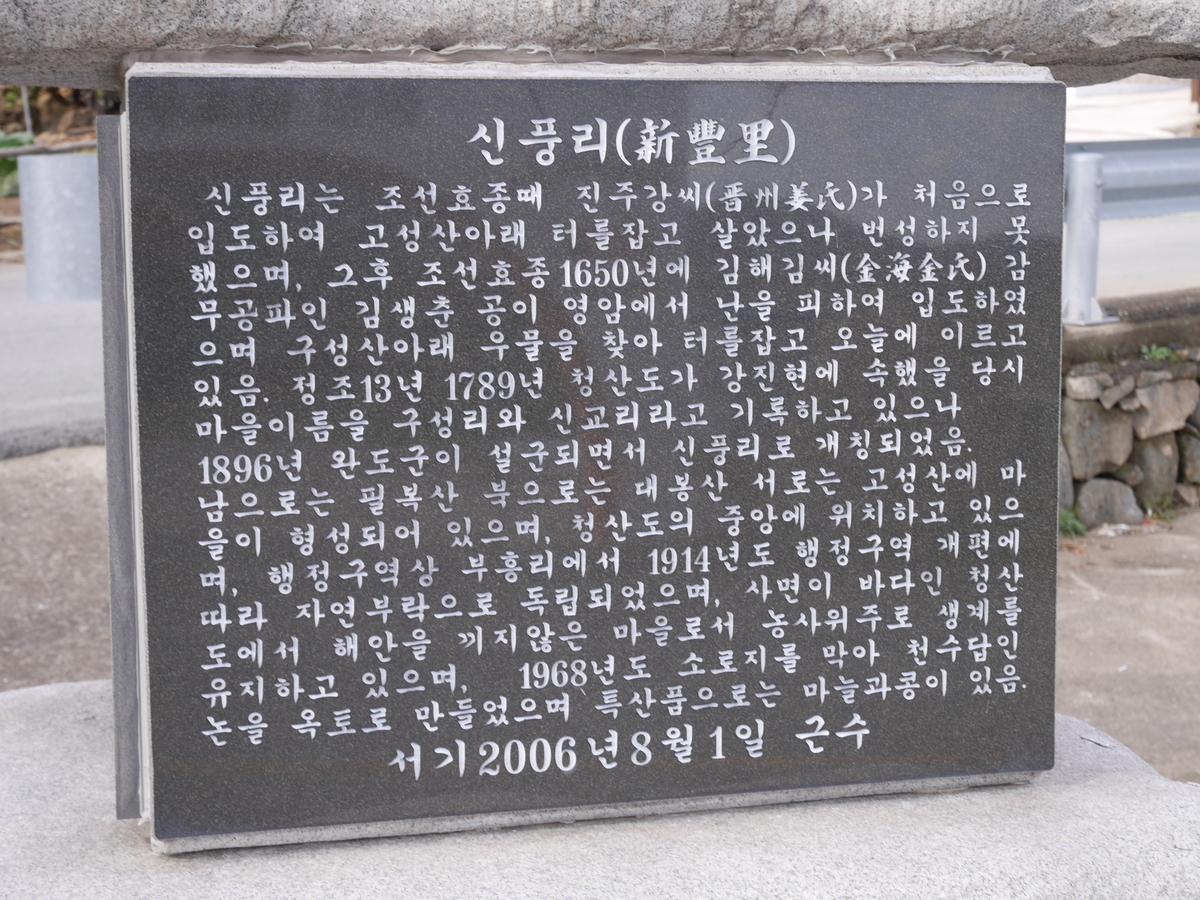 신풍리(新豐里)
신풍리는 조선효종때 진주강씨(晋州姜氏)가 처음으로
입도하여 고성산아래 터를잡고 살았으나 번성하지 못
했으며, 그후 조선효종1650년에 김해김씨(金海金氏) 감
무공파인 김생춘 공이 영암에서 난을 피하여 입도하였
으며 구성산아래 우물을 찾아 터를잡고 오늘에 이르고
있음. 정조13년 1789년 청산도가 강진현에 속했을 당시
마을이름을 구성리와 신교리라고 기록하고 있으나
1896년 완도군이 설군되면서 신풍리로 개칭되었음.
남으로는 필복산 북으로는 대봉산 서로는 고성산에 마
을이 형성되어 있으며, 청산도의 중앙에 위치하고 있으
며, 행정구역상 부흥리에서 1914년도 행정구역 개편에
따라 자연부락으로 독립되었으며, 사면이 바다인 청산
도에서 해안을 끼지않은 마을로서 농사위주로 생계를
유지하고 있으며, 1968년도 소로지를 막아 천수답인
논을 옥토로 만들었으며 특산품으로는 마늘과콩이 있음.
서기2006년8월1일 근수